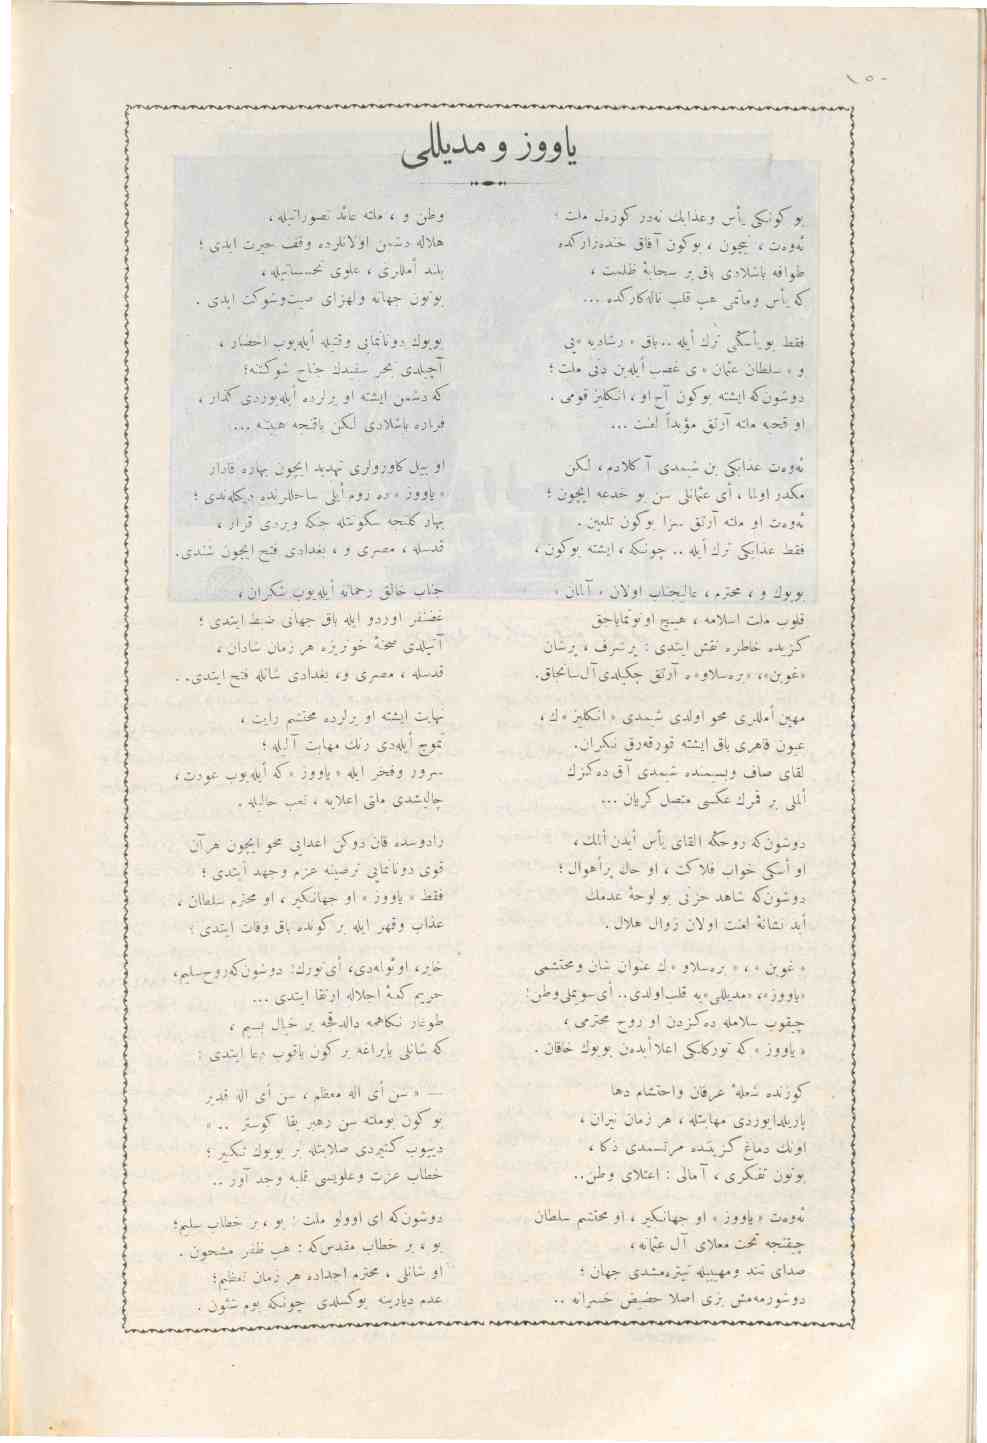 ١٥٠
ياووز و مديللى
بو كونكى يأس وعذابك نه‌در كوزه‌ل ملت ؛
ئه‌وه‌ت ، نيچون ، بوكون آفاق خنده‌زاركده
طوافه باشلادى باق بر سحابهٔ ظلمت ،
كه يأس وماتمى هب قلب ناله‌كاركده ...
فقط بو يأسكى ترك أيله .. باق « رشاديه »يى
و « سلطان عثمان » ى غصب أيله‌ين دنى ملت ؛
دوشون‌كه ايشته بوكون آج او ، انكليز قومى .
او قحبه ملته آرتق مؤبداً لعنت ...
ئه‌وه‌ت عذابكى بن شيمدى آكلادم ، لكن
مكدر اولما ، أى عثمانلى سن بو خدعه ايچون ؛
ئه‌وه‌ت او ملته آرتق سزا بوكون تلعين .
فقط عذابكى ترك أيله .. چونكه ، ايشته بوكون ،
بويوك و ، محترم ، عاليجناب اولان « آلمان »
قلوب ملت اسلامه ، هيچ اونوتمايا‌جق
كزيده خاطره نقش ايتدى : پرشرف ، پرشان
«غوبن»، «بره‌سلاو»ه آرتق چكيلدى آل سانجاق.
مهين أمللرى محو اولدى شيمدى « انكليز »ك ،
عيون قاهرى باق ايشته قورقه‌رق نكران.
لقاى صاف وبسيمنده شيمدى آق ده‌كزك
ألملى بر قمرك عكسى متصل كريان ...
دوشون‌كه روحكه القاى يأس أيدن ألمك ،
او أسكى خواب فلاكت ، او حال پرأهوال ؛
دوشون‌كه شاهد حزنى بو لوحهٔ عدمك
أبد نشانهٔ لعنت اولان زوال هلال .
« غوبن » ، « بره‌سلاو »ك عنوان شان ومحتشمى
«ياووز»، «مديللى»يه قلب اولدى.. أى سوكيلى وطن!
چيقوب سلامله ده‌كزدن او روح محترمى ،
« ياووز » كه توركلكى اعلا أيده‌ن بويوك خاقان .
كوزنده شعلهٔ عرفان واحتشام دها
پاريلدايوردى مهابتله ، هر زمان نيران ،
اونك دماغ كزيننده مرتسمدى ذكا ،
بوتون تفكرى ، آمالى : اعتلاى وطن..
ئه‌وه‌ت «ياووز» او جهانكير ، او محتشم سلطان
چيقنجه تخت معلاى آل عثمانه ،
صداى تند ومهيبيله تيتره‌مشدى جهان ؛
دوشورمه‌مش بزى اصلا حضيض خسرانه ..
وطن و ، ملته عائد تصوراتيله ،
هلاله دشمن اولانلرده وقف حيرت ايدى ؛
بلند أمللرى ، علوى تحسساتيله ،
بوتون جهانه ولهزاى صيت‌وشوكت ايدى .
بويوك دونانمايى وقتيله أيله‌يوب احضار ،
آچيلدى بحر سفيدك جناح شوكتنه؛
كه دشمن ايشته او يرلرده أيله‌يوردى كذار ،
فراره باشلادى لكن باقنجه هيبتنه ...
او بيل كاورولرى تهديد ايچون بهاره قادار
« ياووز » ده روم أيلى ساحللرنده ديكله‌ندى ؛
بهار كلنجه سكونتله جنكه ويردى قرار ،
قدسله ، مصرى و ، بغدادى فتح ايچون شندى.
جناب خالق رحمانه أيله‌يوب شكران ،
غضنفر اوردو ايله باق جهانى ضبط ايتدى ؛
آتيلدى صحنهٔ خونريزه هر زمان شادان ،
قدسله ، مصرى و، بغدادى شانله فتح ايتدى..
نهايت ايشته او يرلرده محتشم رايت ،
تموج أيله‌دى رنك مهابت آليله ؛
سرور وفخر ايله « ياووز »كه أيله‌يوب عودت،
چاليشدى ملتى اعلايه ، تعب حاليله .
رادوسده قان دوكن اعدايى محو ايچون هرآن
قوى دونانمايى ترصينه عزم وجهد ايتدى ؛
فقط « ياووز » او جهانكير ، او محترم سلطان ،
عذاب وقهر ايله بر كونده باق وفات ايتدى ؛
خاير، اوئوله‌دى، أى تورك: دوشون‌كه‌روح سليم،
حريم كعبهٔ اجلاله ارتقا ايتدى ...
طوغار نكاهمه دالدقجه بر خيال بسيم ،
كه شانلى بايراغه بر كون باقوب دعا ايتدى :
— « سن أى اله معظم ، سن أى الله قدير
بو كون بوملته سن رهبر بقا كوستر .. »
دييوب كتيردى صلابتله بر بويوك تكبير ؛
خطاب عزت وعلويسى قلبه وجد آور ..
دوشون‌كه اى اوولو ملت : بو ، بر خطاب سليم؛
بو ، بر خطاب مقدس‌كه : هب ظفر مشحون .
او شانلى ، محترم اجداده هر زمان تعظيم؛
عدم ديارينه يوكسلدى چونكه بوم شئون .